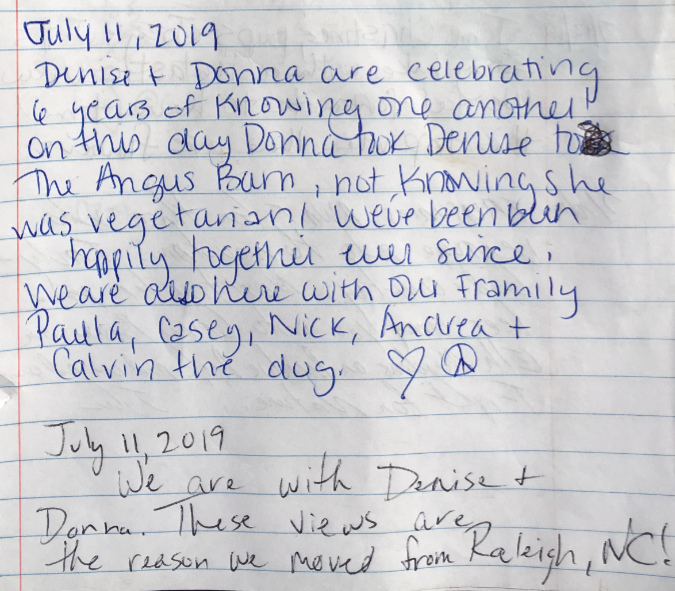 July 11, 2019
Denise + Donna are celebrating
6 years of knowing one another!
on this day Donna took Denise to
The Angus Barn, not knowing she
was vegetarian! We've been been
happily together ever since.
We are also here with our Framily
Paula, Casey, Nick, Andrea +
Calvin the dog. ♡ ☮
July 11, 2019
We are with Denise +
Donna. These views are
the reason we moved from Raleigh, NC!